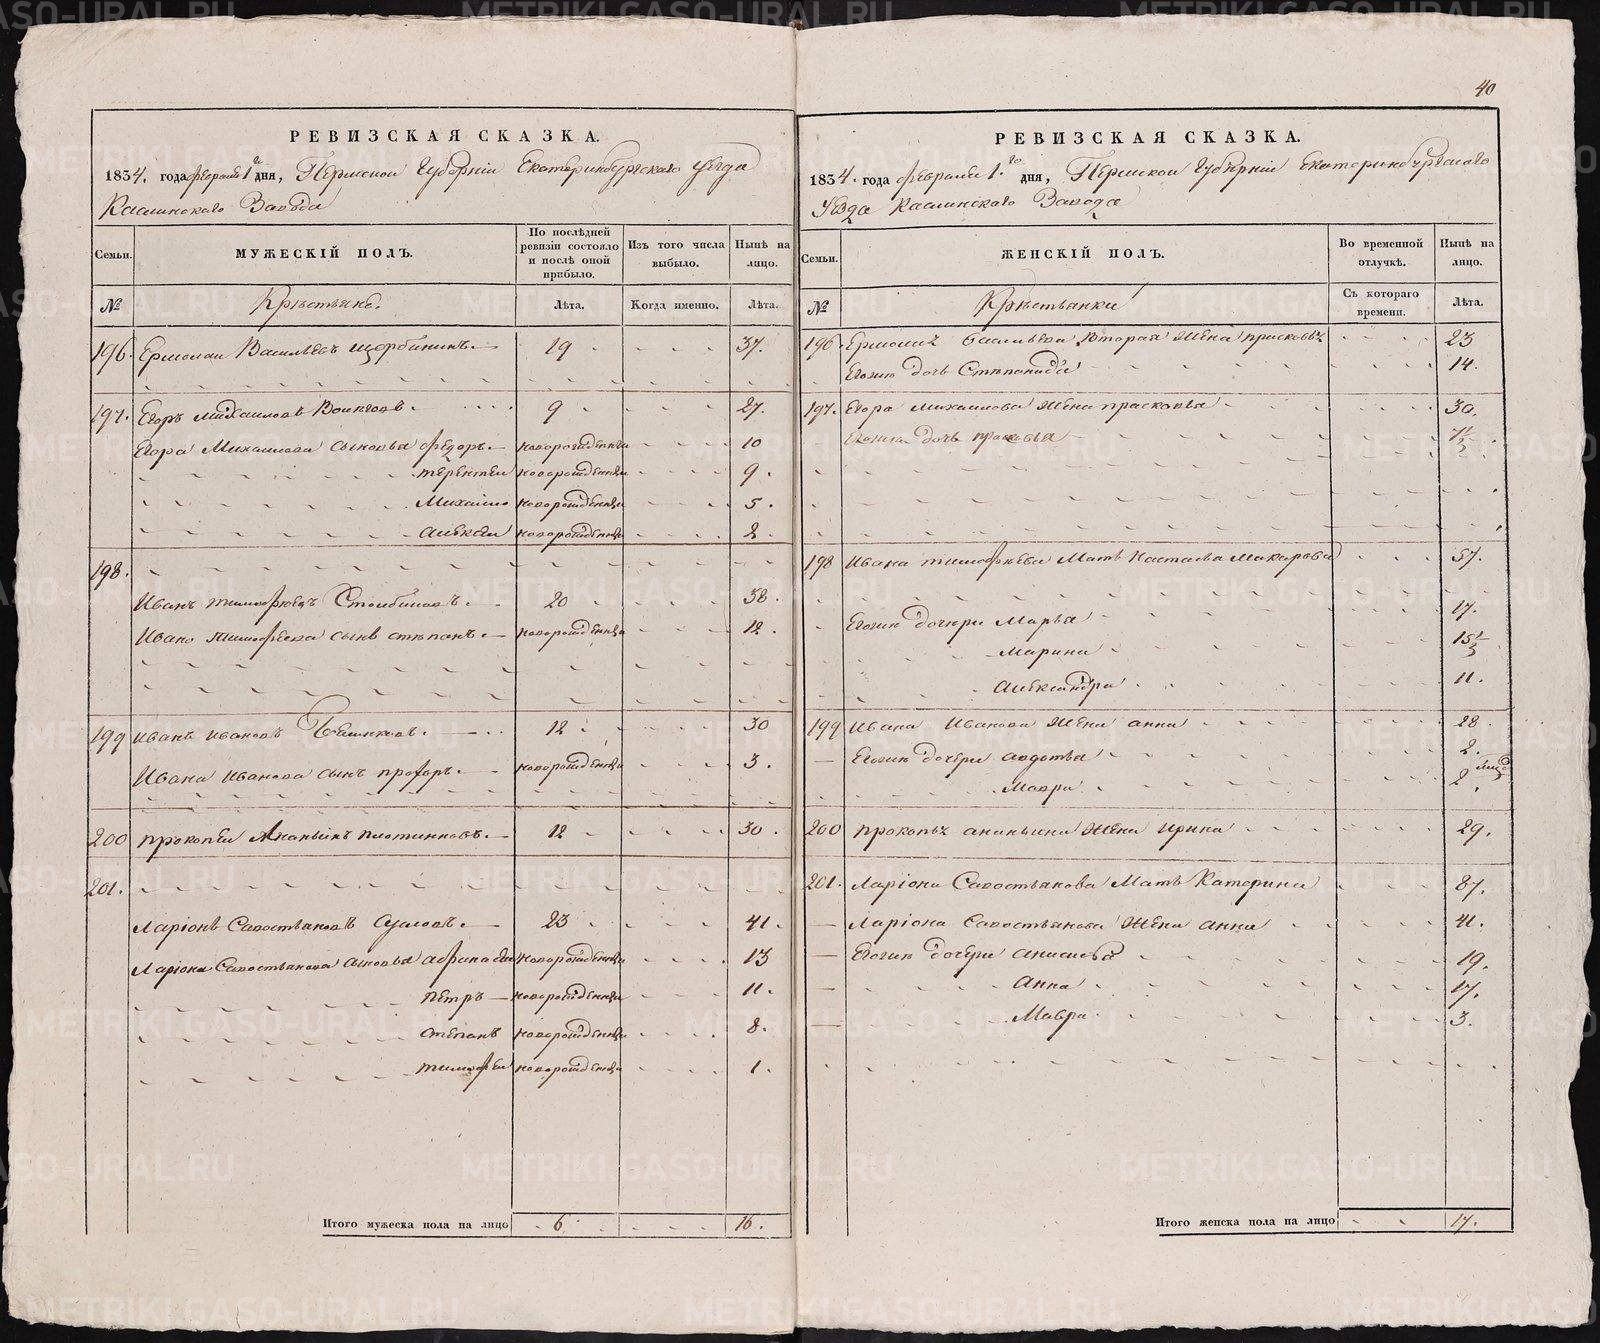 40
РЕВИЗСКАЯ СКАЗКА.
1834. года февраля 1го дня, Пермской Губерніи Екатеринбургскаго уезда
Каслинскаго Завода
Семьи. МУЖЕСКІЙ ПОЛЪ. По послѣдней ревизіи состояло и послѣ оной прибыло. Изъ того числа выбыло. Нынѣ на лицо.
№ Крестьяне. Лѣта. Когда именно. Лѣта.
196. Ермолаи Васильевъ Щербининъ. 19 37.
197. Егоръ Михаиловъ 9 27.
Егора Михаилова сыновья федоръ. новорожденны 10
терентеи новорожденны 9.
Михаило новорожденны 5.
алексеи новорожденны 2.
198.
Иванъ тимофеевъ 20 38.
Ивана тимофеева сынъ степанъ. новорожденны 12.
199 иванъ ивановъ 12 30
Ивана Иванова сынъ прохоръ. новорожденны 3.
200 прокопеи Ананьинъ плотниковъ. 12 30.
201.
Ларіонъ Савостьяновъ 23 41.
Ларіона Савостьянова сыновья новорожденны 13
петръ новорожденны 11.
степанъ новорожденны 8.
тимофеи новорожденны 1.
Итого мужеска пола на лицо 6 16.
РЕВИЗСКАЯ СКАЗКА.
1834. года февраля 1.го дня, Пермской Губерніи Екатеринбургскаго
Уезда Каслинскаго Завода
Семьи. ЖЕНСКІЙ ПОЛЪ. Во временной отлучкѣ. Нынѣ на лицо.
№ Крестьянки Съ котораго времени. Лѣта.
196. Васильева Вторая жена 23
Егожъ дочь Степанида 14.
197. Егора михаилова жена прасковья 30.
дочь прасковья
198 Ивана тимофеева Мать Настасья Макарова 57.
Егожъ дочери Марья 17.
Марина
Александра 11.
199 Ивана Иванова жена анна 28.
Егожъ дочери авдотья 2.
Мавра 2
200 прокопья ананьина жена Ирина 29.
201. Ларіона Савостьянова Мать Катерина 87.
Ларіона Савостьянова жена анна 41.
Егожъ дочери анисья 19.
Анна 17.
Мавра 3.
Итого женска пола на лицо 17.
METRIKI.GASO-URAL.RU